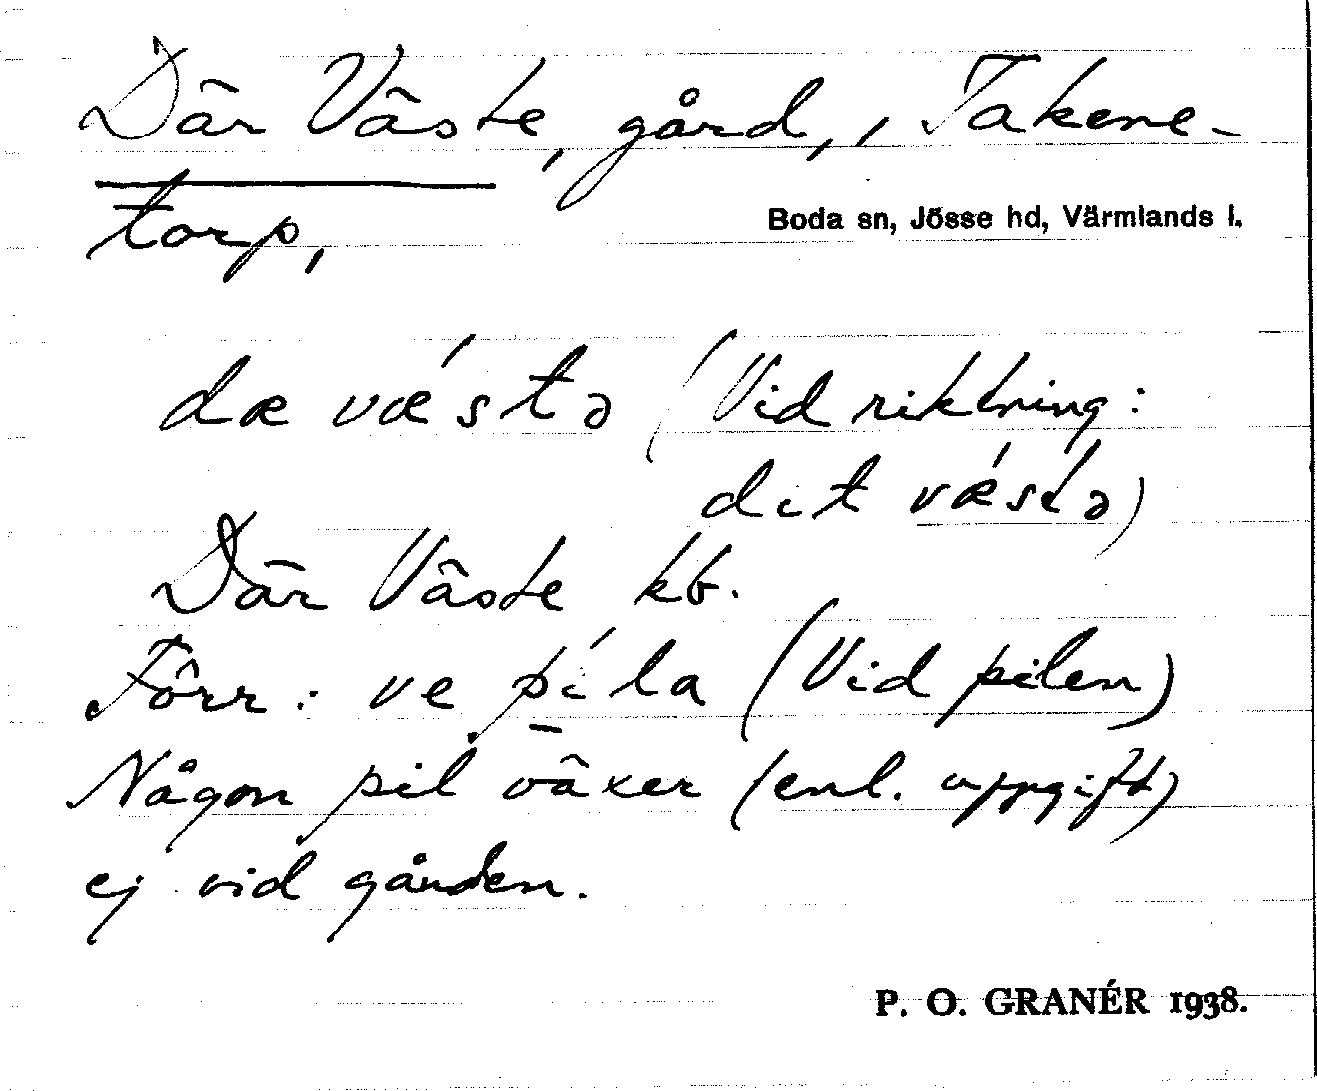 Där Väste, gård, i Takene-
torp,
Boda sn, Jösse hd, Värmlands l.
dæ vǽstə (Vid riktning:
dit vǽstə)
Där Väste kb.
Förr: ve pí̱la (Vid pilen)
Någon pil växer (enl. uppgift)
ej vid gården.
P. O. GRANÉR 1938.